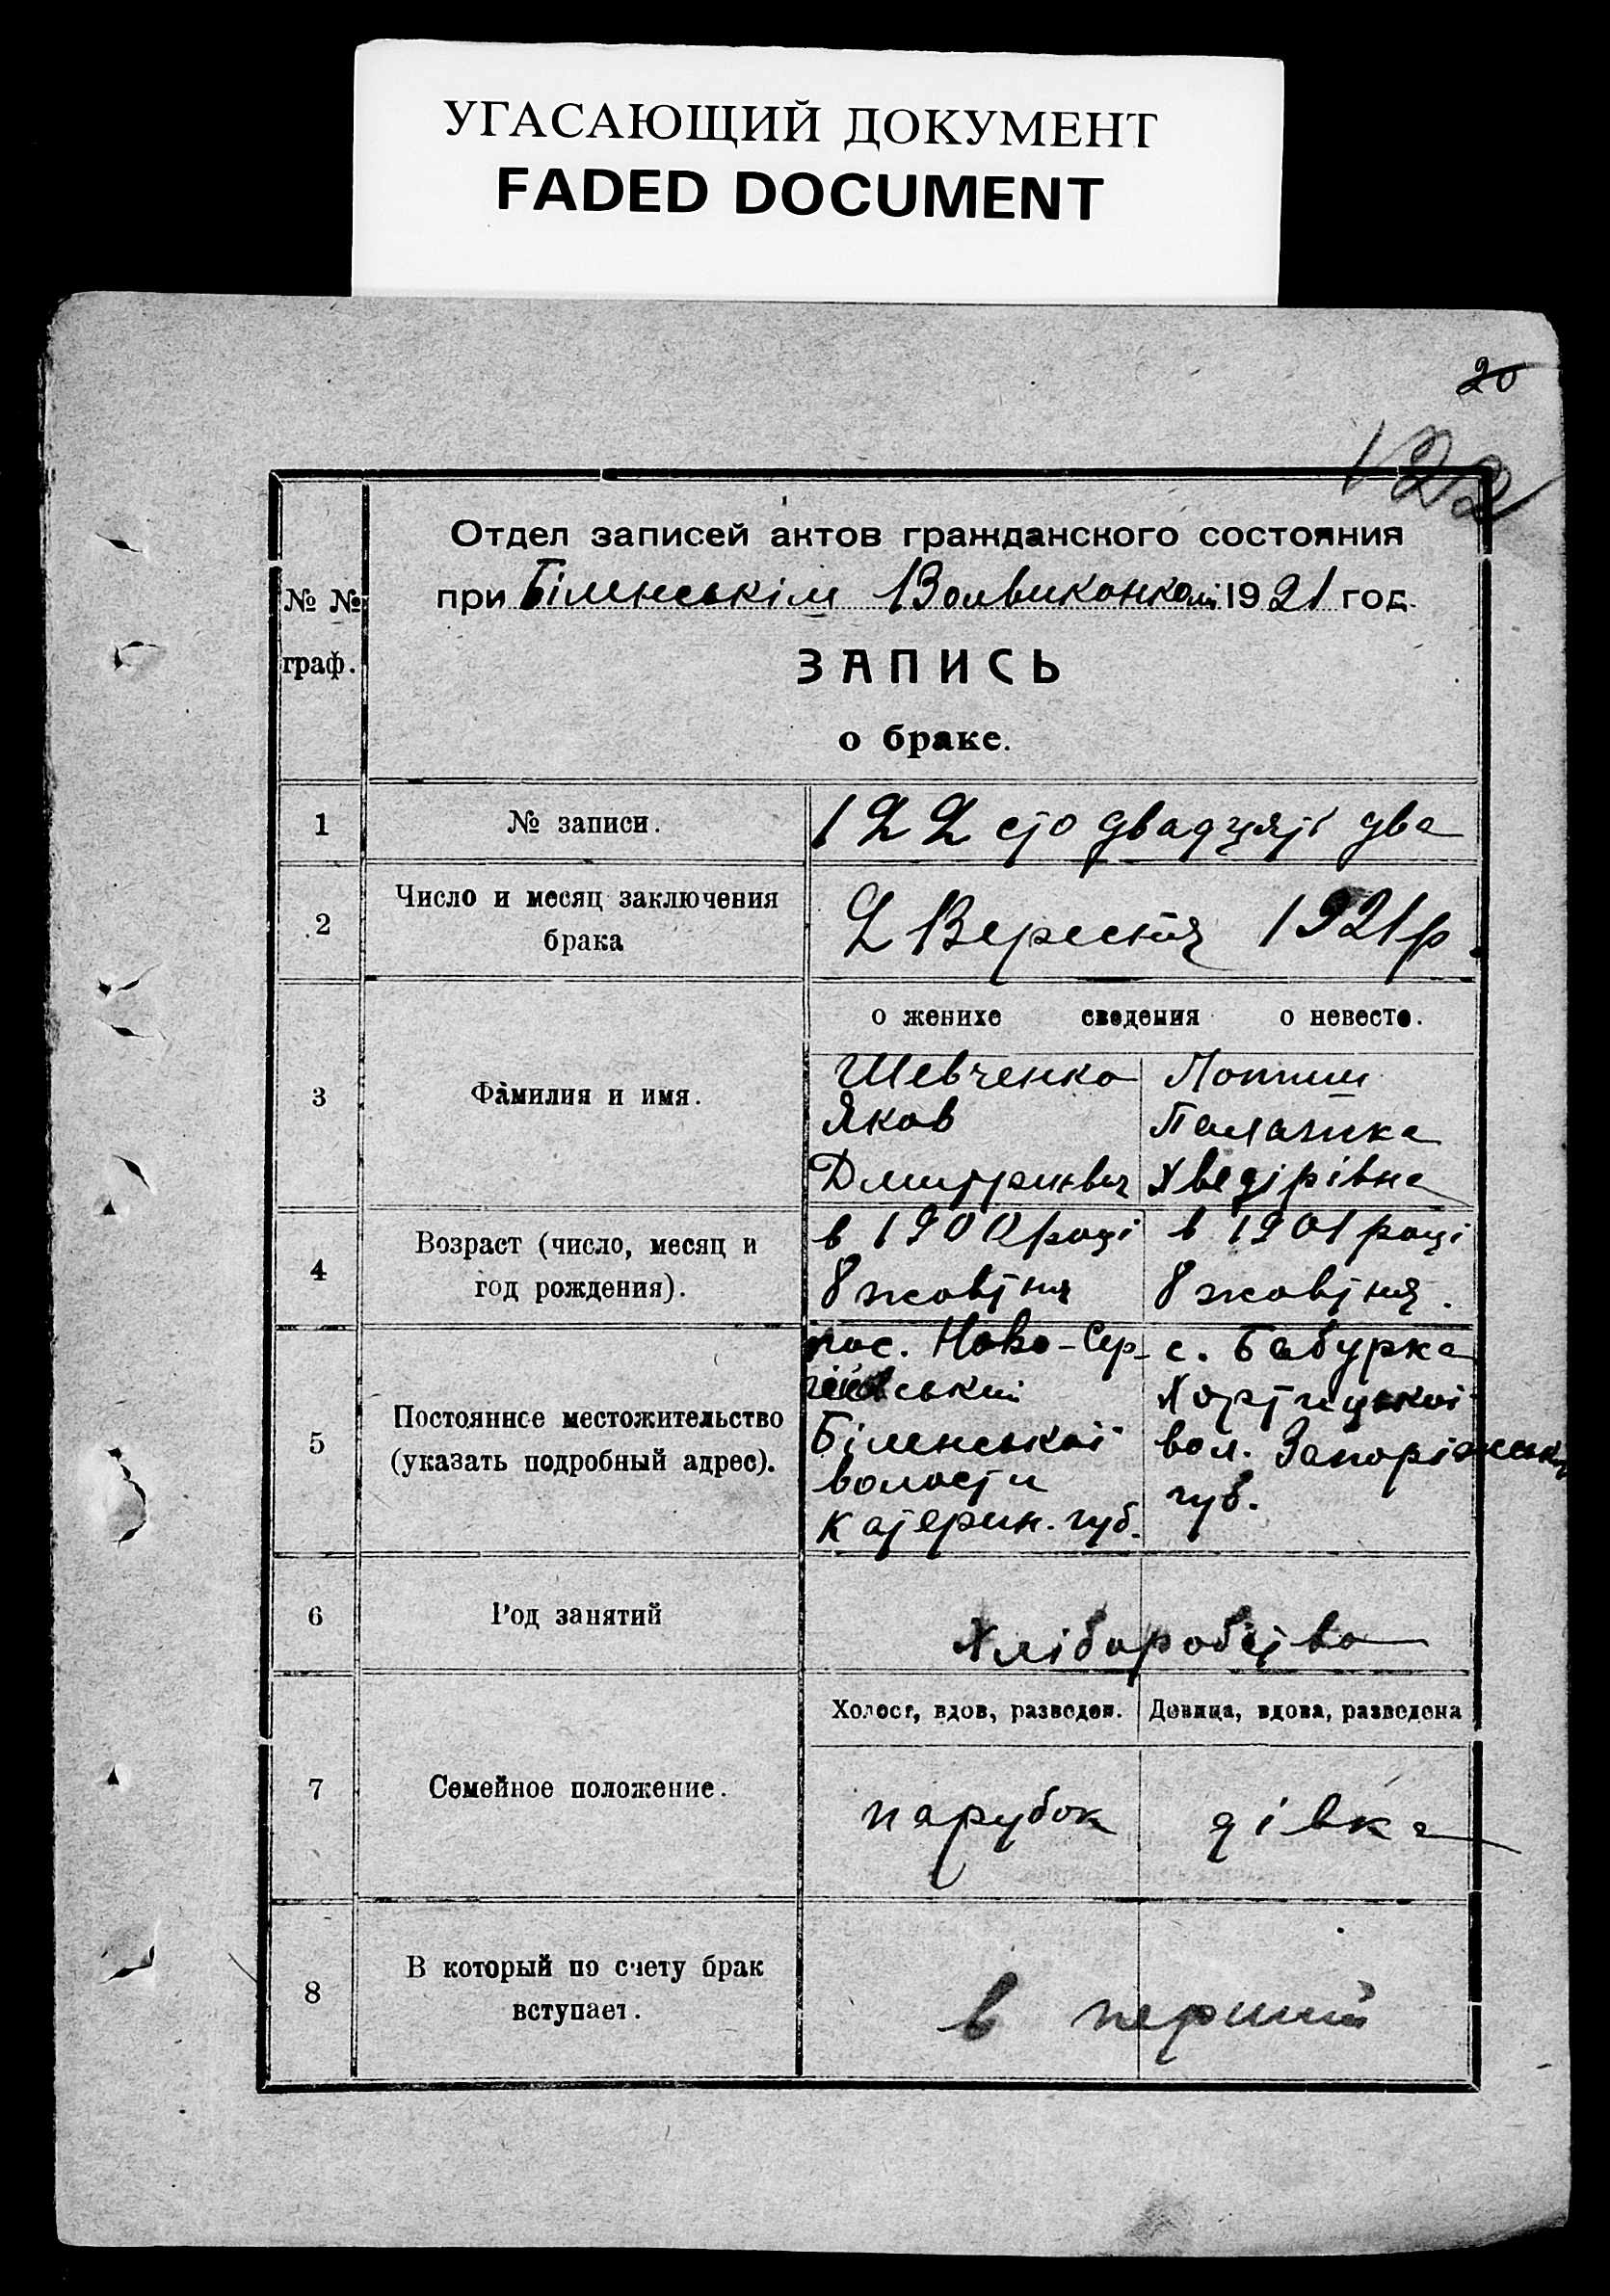 УГАСАЮЩИЙ ДОКУМЕНТ
FADED DOCUMENT
20
122
№ № граф.
Отдел записей актов гражданского состояния
при Біленськім Волвиконкомі 1921 год.
ЗАПИСЬ
о браке.
1 № записи. 122 сто двадцять два
2 Число и месяц заключения брака 2 Вересня 1921 р.
о женихе сведения о невесте.
3 Фамилия и имя.
Шевченко
Яков
Дмитриевич
Палажка
Хведірівна
4 Возраст (число, месяц и год рождения).
в 1900 році
8 жовтня
в 1901 році
8 жовтня.
5 Постоянное местожительство (указать подробный адрес).
пос. Ново-Сер-
гіївський
Біленської
волости
Катерин. губ.
с. Бабурка
Хортицької
вол. Запоріжськ
губ.
6 Род занятий Хліборобство
7 Семейное положение.
Холост, вдов, разведен. Девица, вдова, разведена
парубок дівка
8 В который по счету брак вступает. в перший